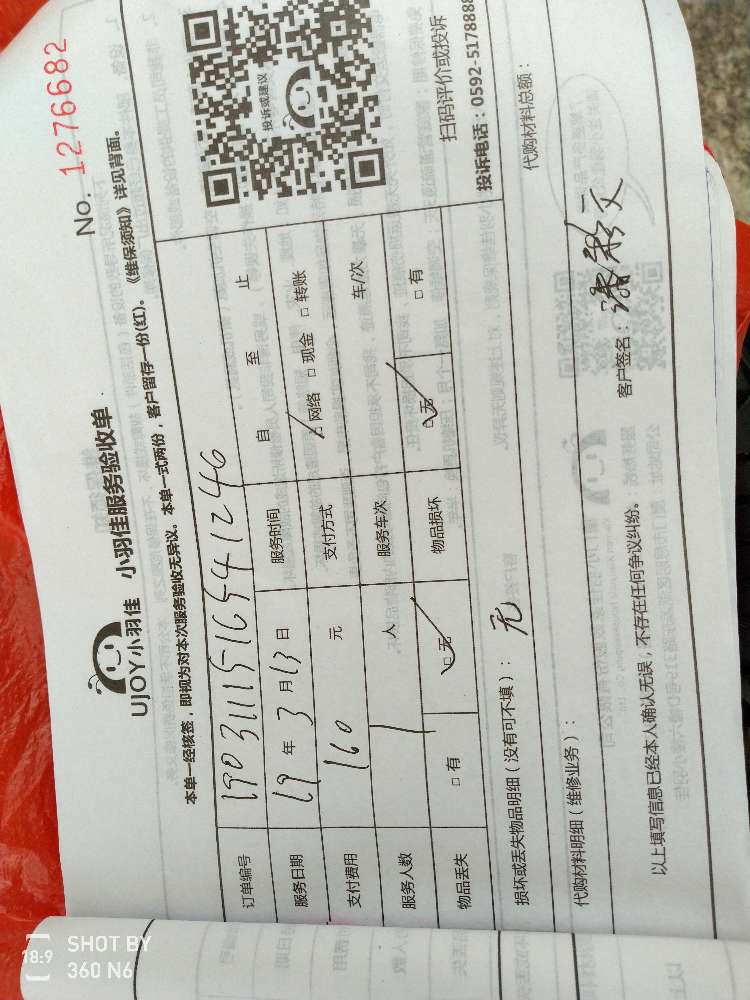 No. 1276682
UJOY小羽佳 小羽佳服务验收单
本单一经核签，即视为对本次服务验收无异议。本单一式两份，客户留存一份(红)。《维保须知》详见背面。
订单编号 190311151654124​6
服务日期 19 年 3 月 13 日 服务时间 自 至 止
支付费用 160 元 支付方式 □ 网络 □ 现金 □ 转账
服务人数 1 人 服务车次 车/次
物品丢失 □ 有 □ 无 物品损坏 □ 无 □ 有
投诉或建议
扫码评价或投诉
投诉电话：0592-5178888
损坏或丢失物品明细（没有可不填）： 无
代购材料明细（维修业务）： 代购材料总额：
以上填写信息已经本人确认无误，不存在任何争议纠纷。 客户签名：
18:9 SHOT BY
360 N6